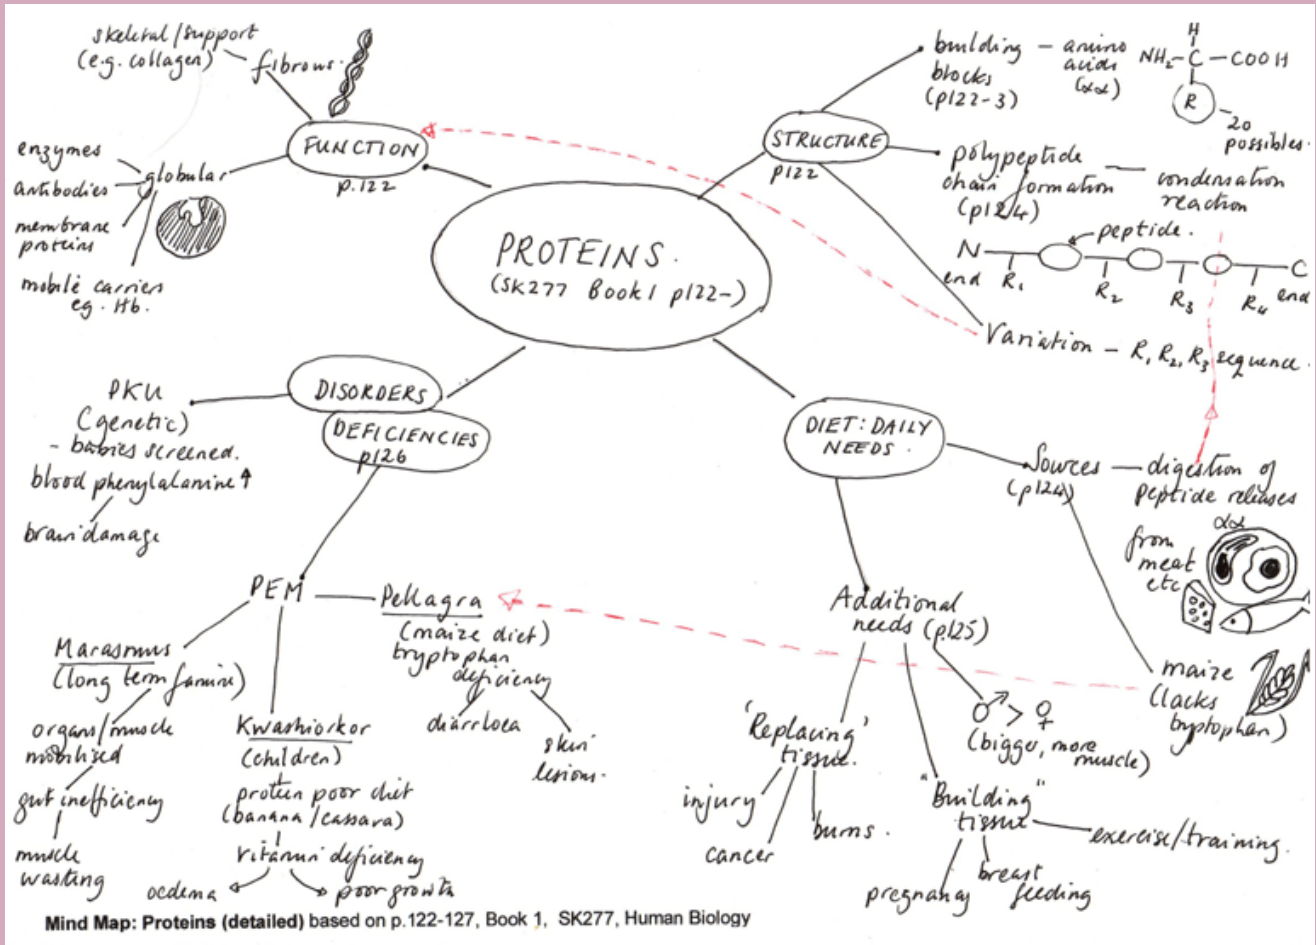 PROTEINS.
(SK277 Book 1 p122-)
FUNCTION
p.122
fibrous.
skeletal/support
(e.g. collagen)
globular
enzymes
antibodies
membrane
proteins
mobile carriers
eg. Hb.
STRUCTURE
p122
building
blocks
(p122-3)
– amino
acids
(αα)
H
NH2 – C – COOH
R
20
possibles.
polypeptide
chain formation
(p124)
condensation
reaction
peptide.
N
end
R1
R2
R3
R4
C
end
Variation – R1 R2, R3 sequence.
DISORDERS
DEFICIENCIES
p126
PKU
(genetic)
- babies screened.
blood phenylalanine ↑
brain damage
PEM
Marasmus
(long term famine)
organs/muscle
mobilised
gut inefficiency
muscle
wasting
Kwashiorkor
(children)
protein poor diet
(banana/cassava)
vitamin deficiency
oedema
poor growth
Pellagra
(maize diet)
tryptophan
deficiency
diarrhoea
skin
lesions.
DIET: DAILY
NEEDS.
Sources
(p124)
digestion of
peptide releases
αα
from
meat
etc
maize
(lacks
tryptophan)
Additional
needs (p125)
'Replacing'
tissue.
injury
cancer
burns.
♂ > ♀
(bigger, more
muscle)
"Building"
tissue
exercise/training.
pregnancy
breast
feeding
Mind Map: Proteins (detailed) based on p.122-127, Book 1, SK277, Human Biology